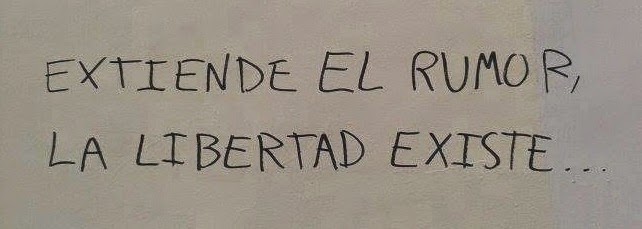 EXTIENDE EL RUMOR,
LA LIBERTAD EXISTE...